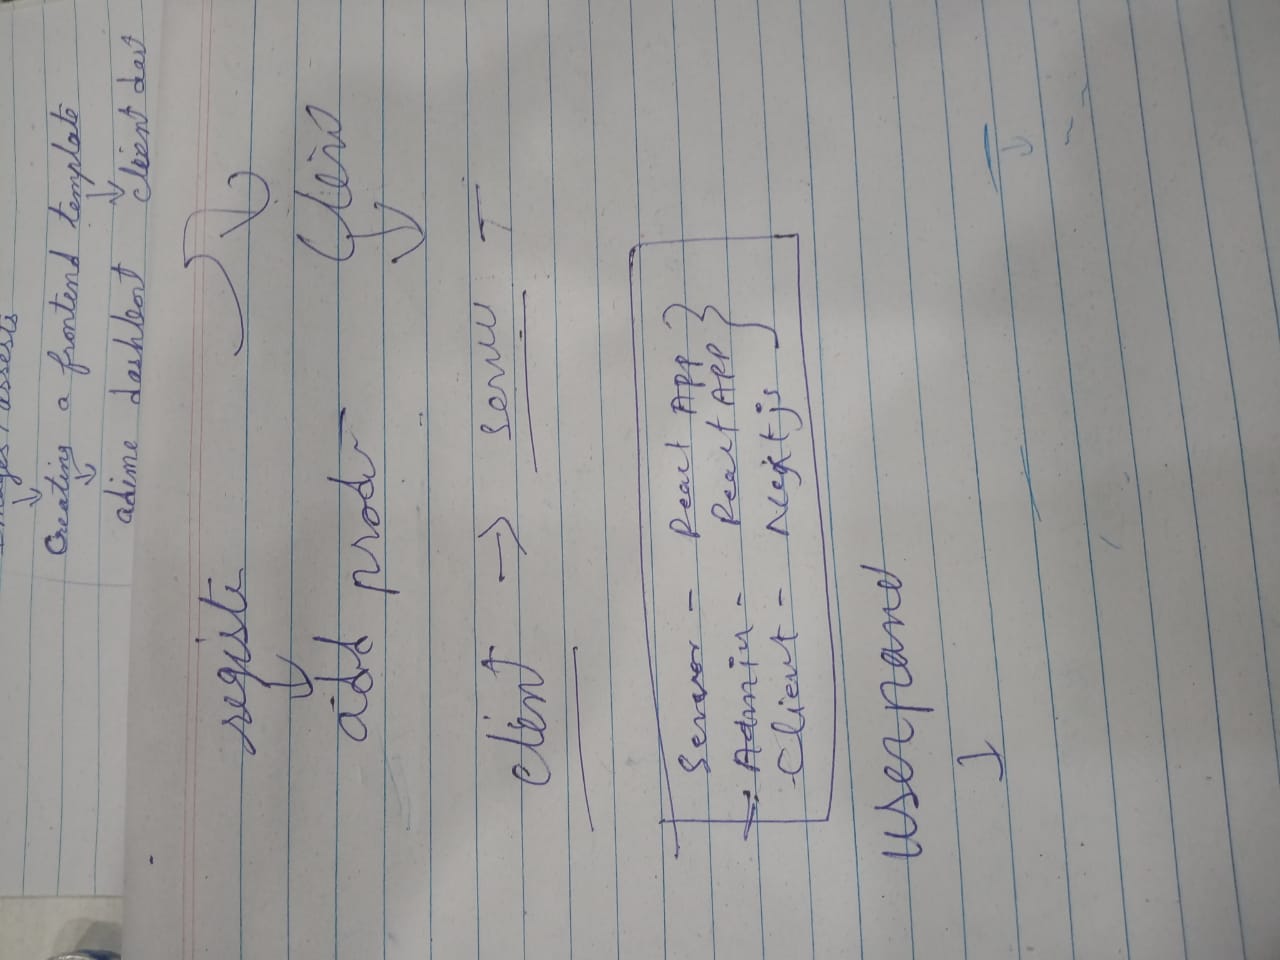 Creating a frontend template
adime dashbort client das
registe
add prod
client → server
Server - React APP
Admin - React APP
Client - Nextjs
userpane